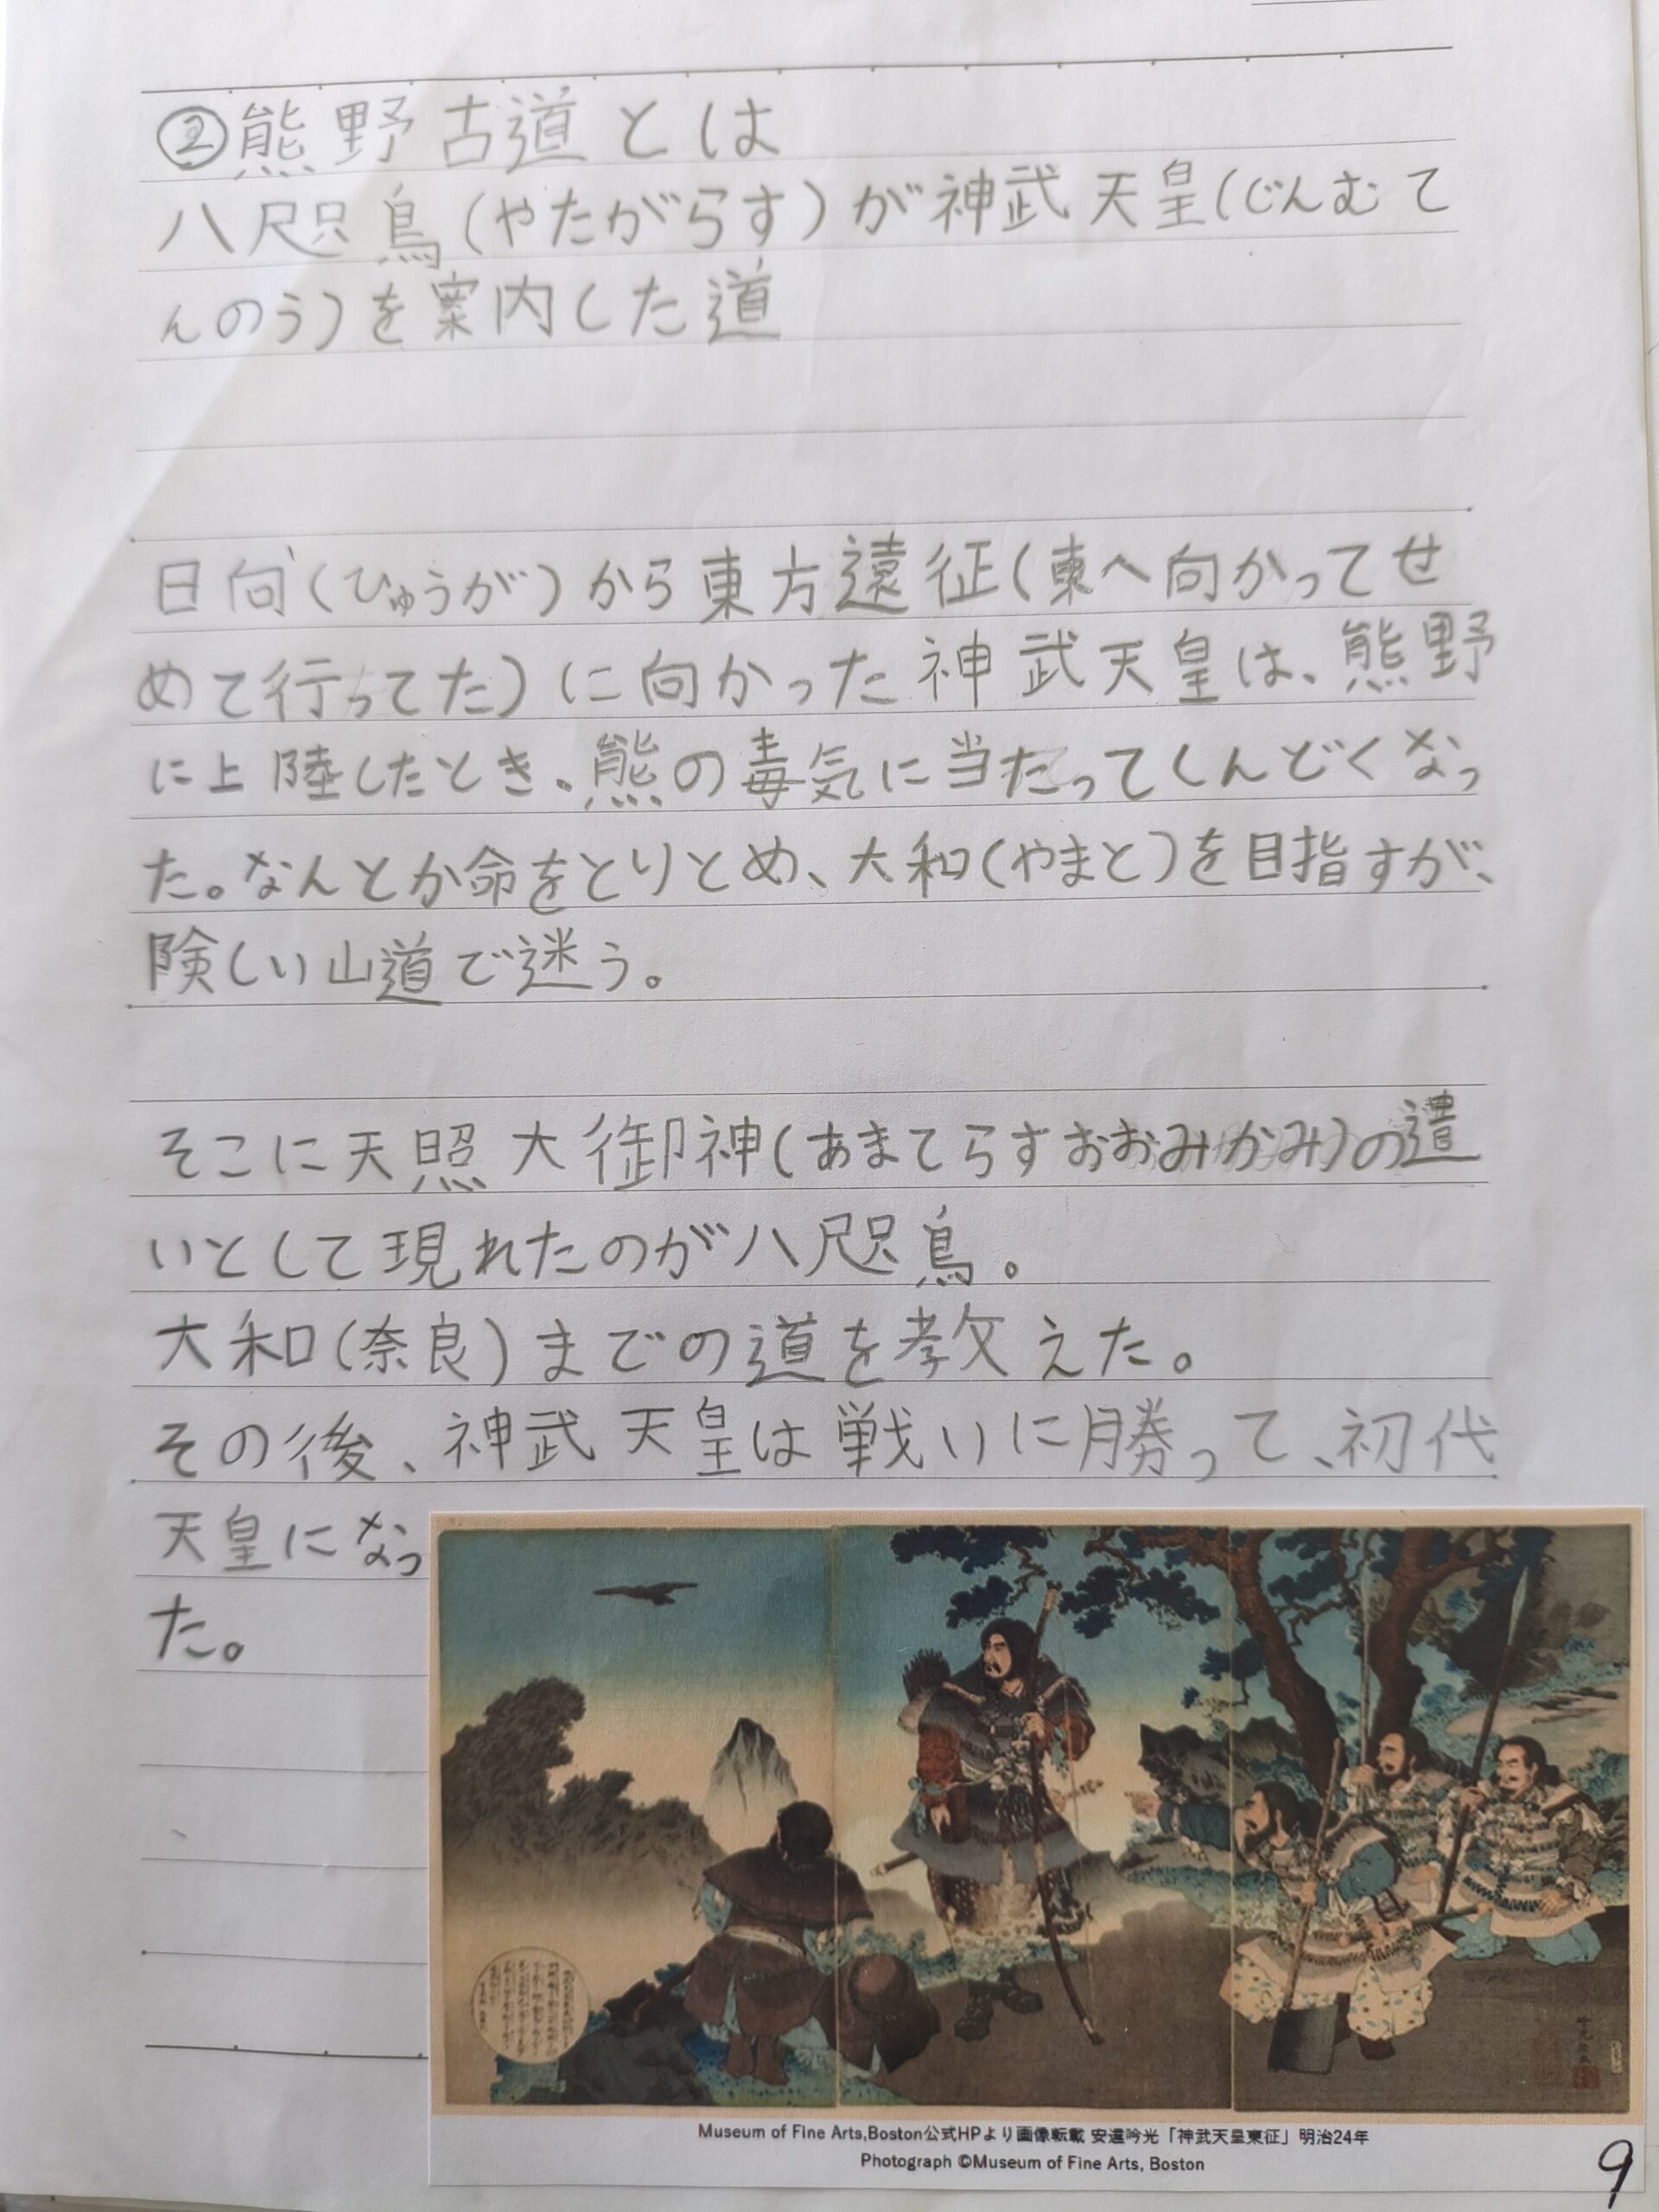 ②熊野古道とは
八咫烏(やたがらす)が神武天皇(じんむて
んのう)を案内した道
日向(ひゅうが)から東方遠征(東へ向かってせ
めて行ってた)に向かった神武天皇は、熊野
に上陸したとき、熊の毒気に当たってしんどくなっ
た。なんとか命をとりとめ、大和(やまと)を目指すが、
険しい山道で迷う。
そこに天照大御神(あまてらすおおみかみ)の遣
いとして現れたのが八咫烏。
大和(奈良)までの道を教えた。
その後、神武天皇は戦いに勝って、初代
天皇になっ
た。
Museum of Fine Arts,Boston公式HPより画像転載 安達吟光「神武天皇東征」明治24年
Photograph ©Museum of Fine Arts, Boston
9